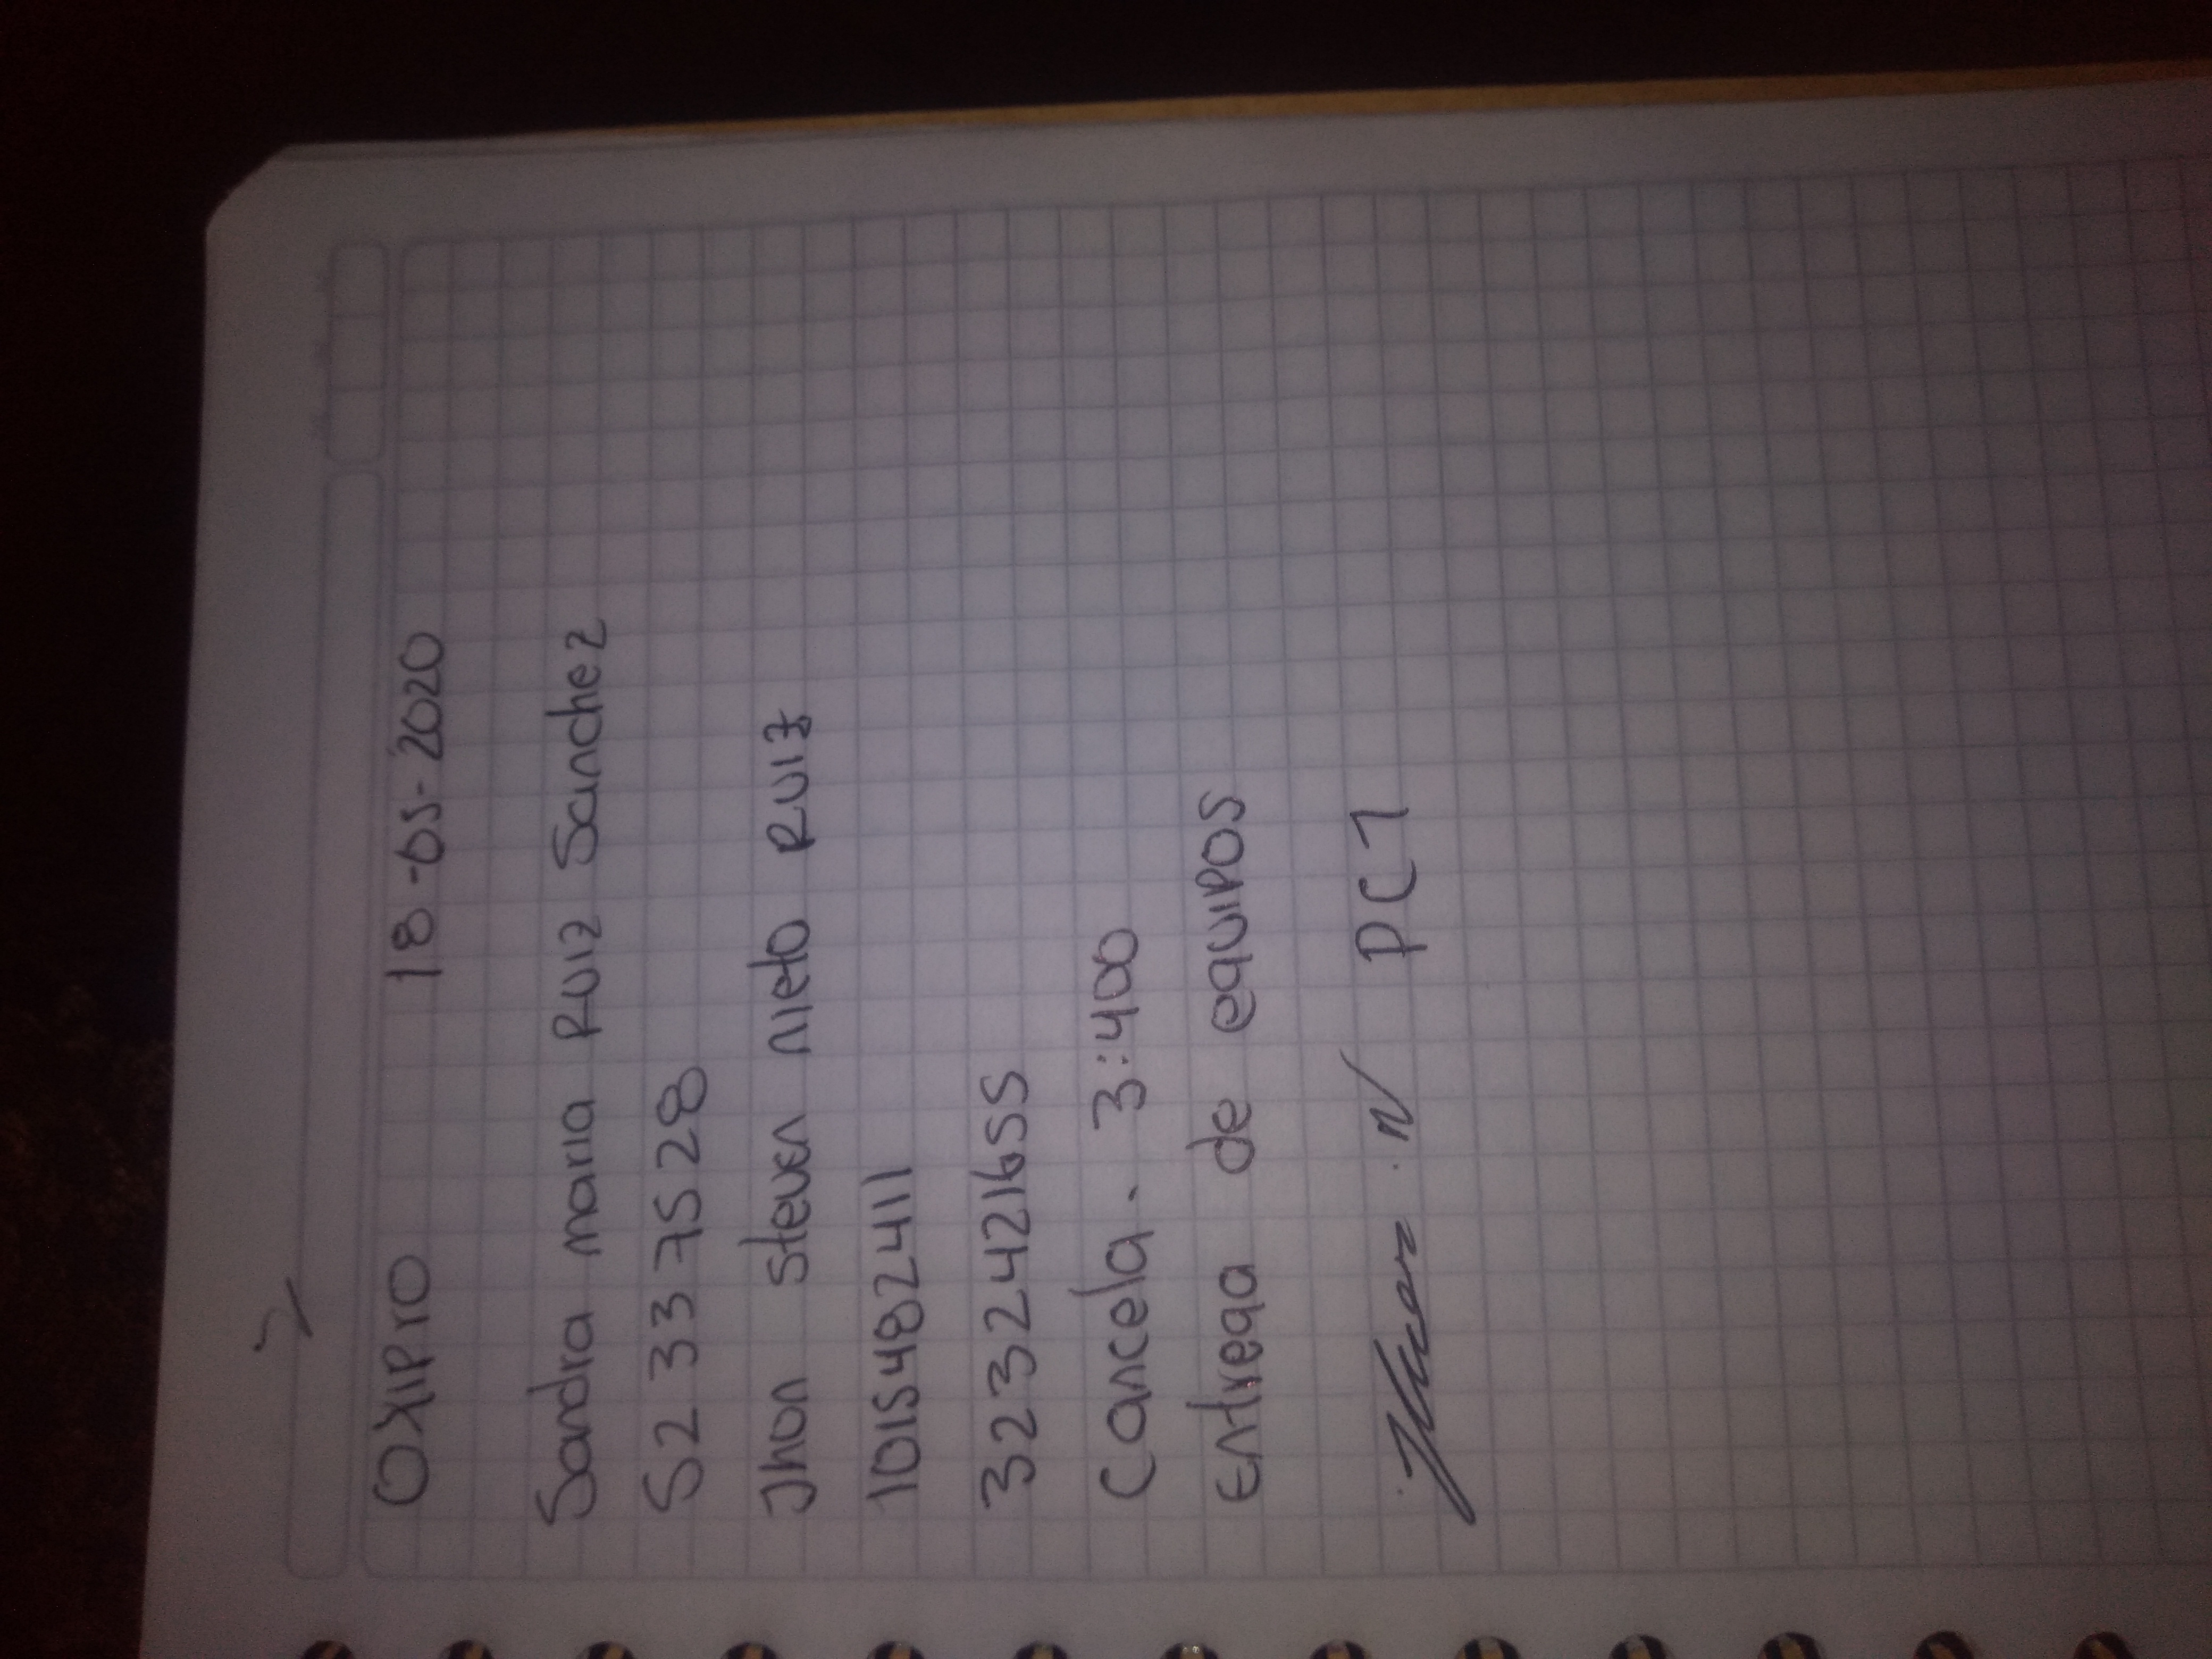 OXIPrO 18-05-2020
Sandra maria Ruiz Sanchez
52337528
Jhon steven nieto Ruiz
1015482411
3232421655
Cancela. 3:400
Entrega de equipos
PC1